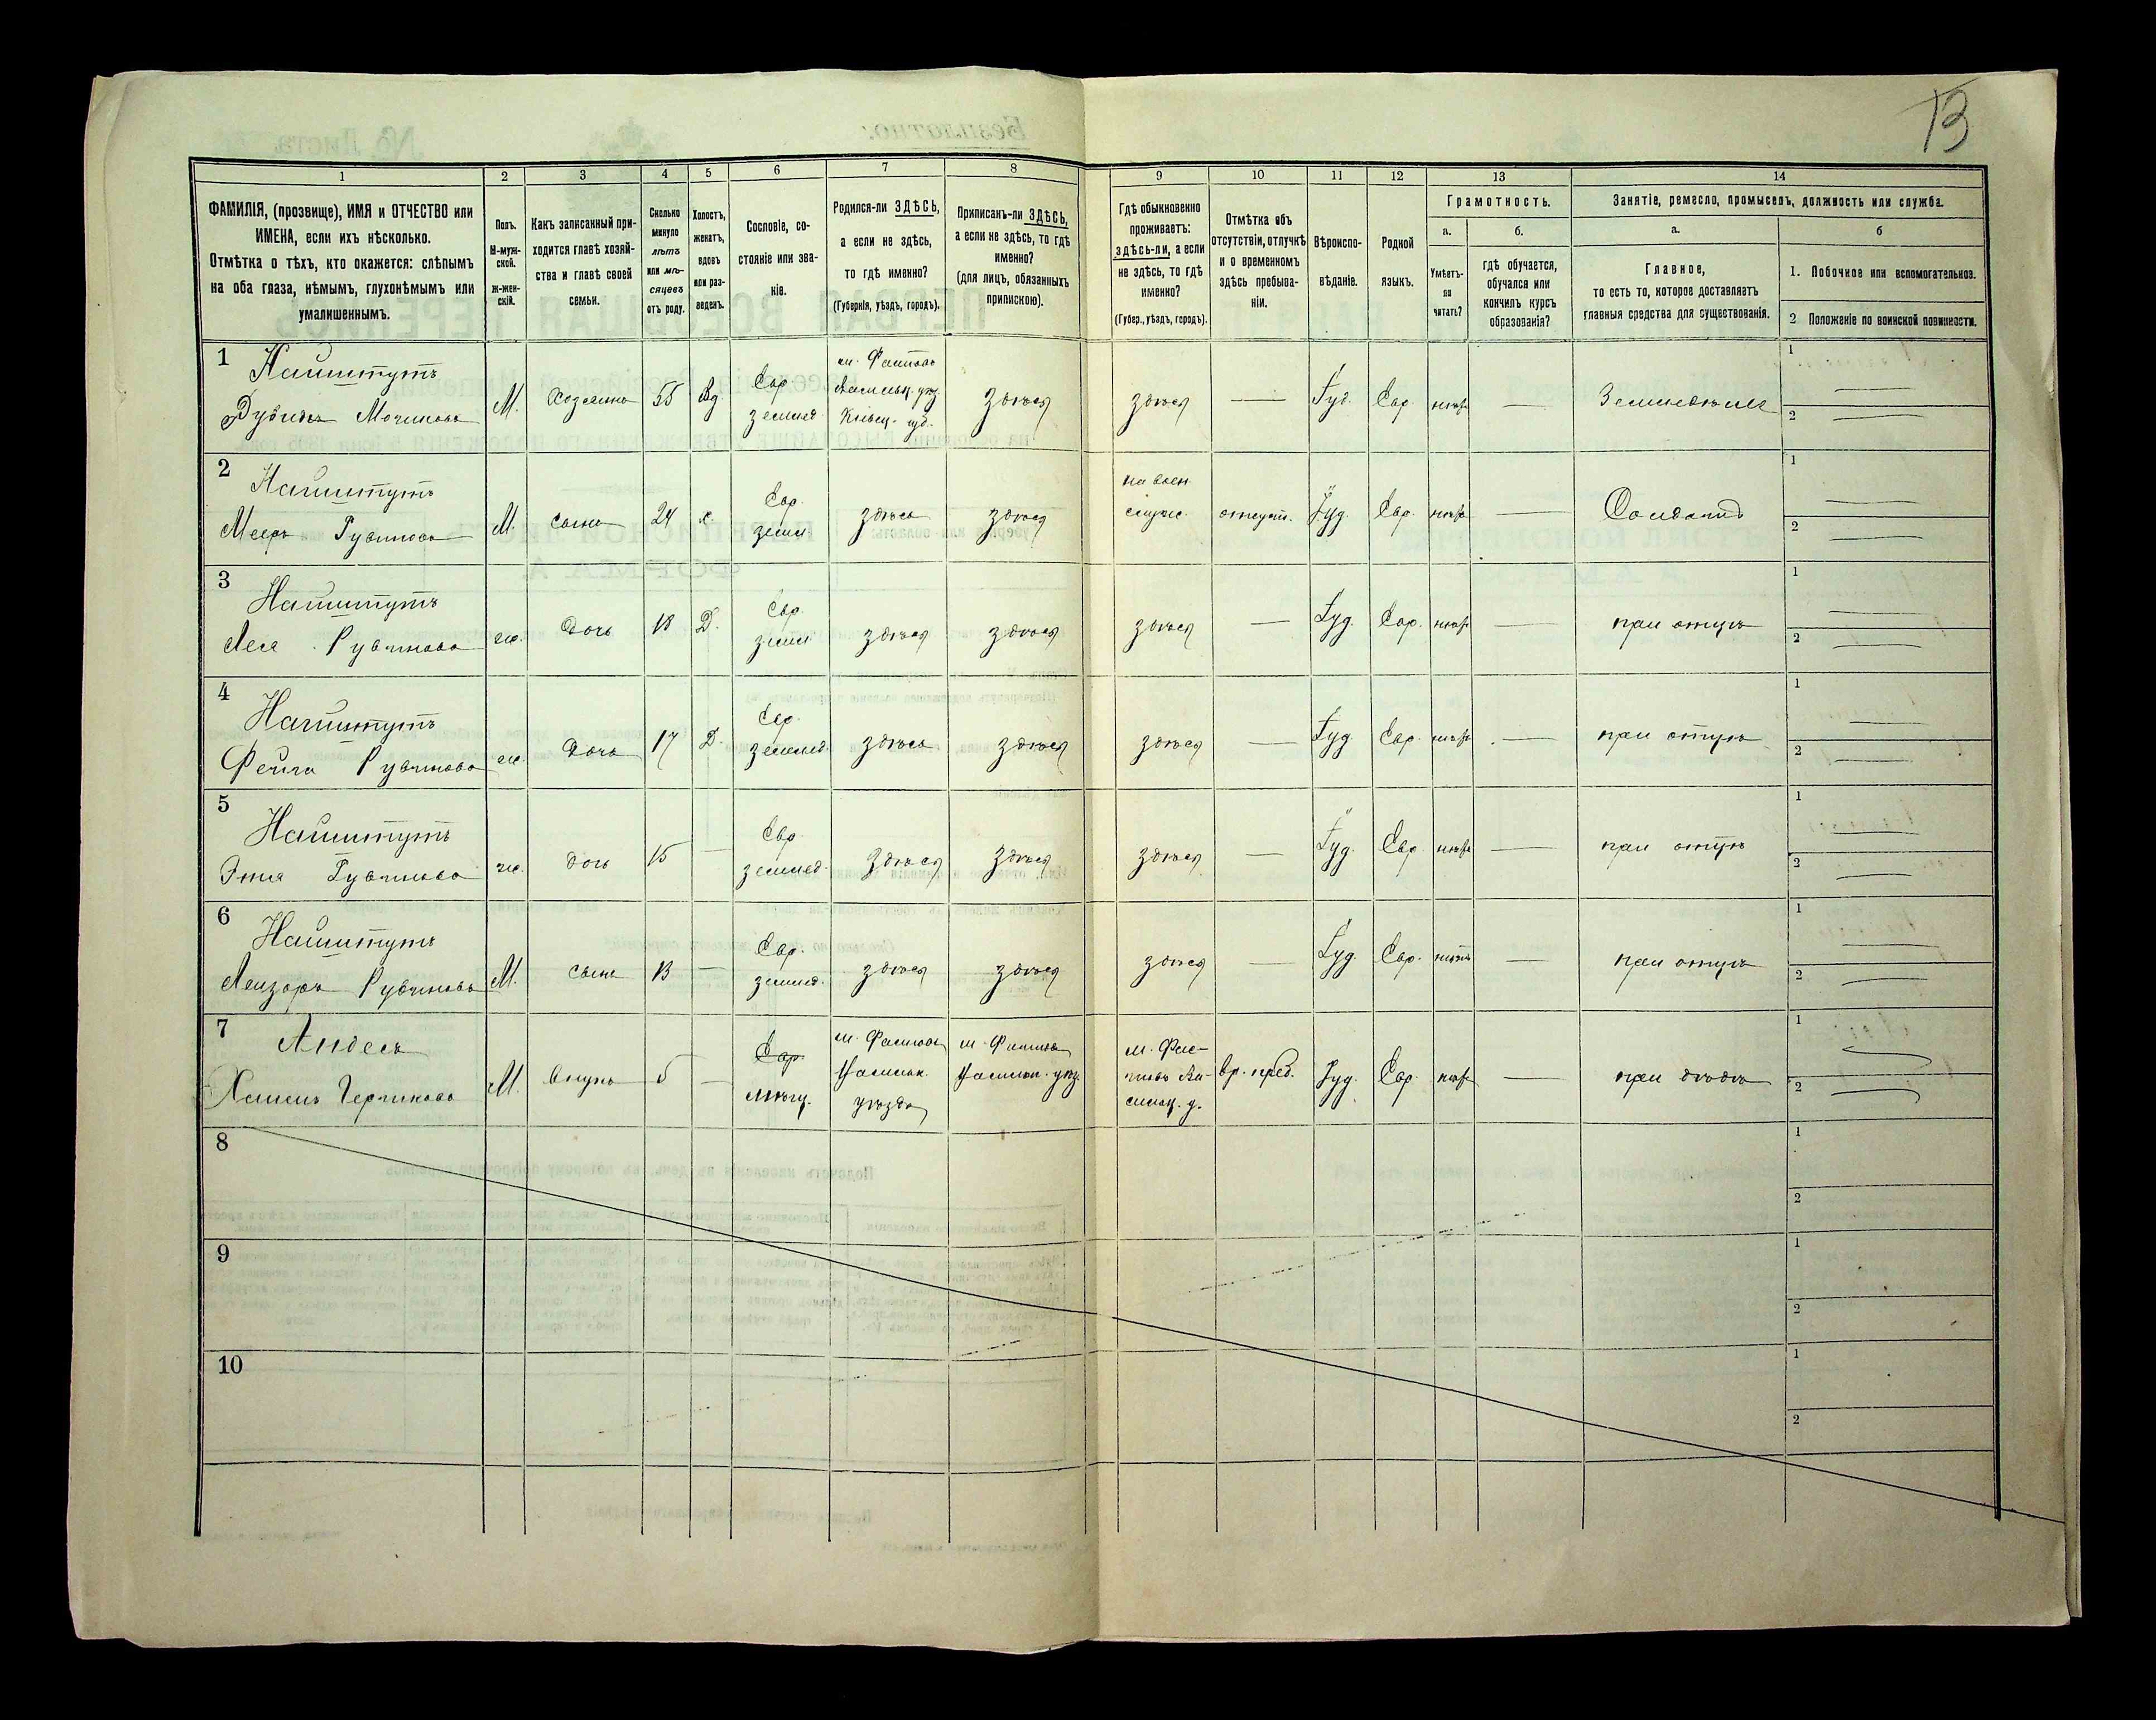 13
1 2 3 4 5 6 7 8 9 10 11 12 13 14
ФАМИЛІЯ, (прозвище), ИМЯ и ОТЧЕСТВО или
ИМЕНА, если ихъ нѣсколько.
Отмѣтка о тѣхъ, кто окажется: слѣпымъ
на оба глаза, нѣмымъ, глухонѣмымъ или
умалишеннымъ.
Полъ.
М-муж-
ской.
ж-жен-
скій.
Какъ записанный при-
ходится главѣ хозяй-
ства и главѣ своей
семьи.
Сколько
минуло
лѣтъ
или мѣ-
сяцевъ
отъ роду.
Холостъ,
женатъ,
вдовъ
или раз-
веденъ.
Сословіе, со-
стояніе или зва-
ніе.
Родился-ли ЗДѢСЬ,
а если не здѣсь,
то гдѣ именно?
(Губернія, уѣздъ, городъ).
Приписанъ-ли ЗДѢСЬ,
а если не здѣсь, то гдѣ
именно?
(для лицъ, обязанныхъ
припискою).
Гдѣ обыкновенно
проживаетъ:
здѣсь-ли, а если
не здѣсь, то гдѣ
именно?
(Губер., уѣздъ, городъ).
Отмѣтка объ
отсутствіи, отлучкѣ
и о временномъ
здѣсь пребыва-
ніи.
Вѣроиспо-
вѣданіе.
Родной
языкъ.
Грамотность.
а. б.
Умѣетъ-
ли
читать?
гдѣ обучается,
обучался или
кончилъ курсъ
образованія?
Занятіе, ремесло, промыселъ, должность или служба.
а. б
Главное,
то есть то, которое доставляетъ
главныя средства для существованія.
1. Побочное или вспомогательное.
2 Положеніе по воинской повинности.
1 Найштутъ м. Фастовъ 1
М. Хозяинъ 55 Вд. Евр. землед. Васильк. уѣз. Кіевск. губ. здѣсь здѣсь — Іуд. Евр. нѣтъ Земледѣліе 2
2 Найштутъ на воен. 1
Рувиновъ М. сынъ 24 х. Евр. землд. здѣсь здѣсь служ. отсут. Іуд. Евр. нѣтъ — Солдатъ 2
3 Найштутъ 1
Лея Рувинова ж. дочь 18 Д. Евр. землд. здѣсь здѣсь здѣсь — Іуд. Евр. нѣтъ — при отцѣ 2
4 Найштутъ 1
Фейга Рувинова ж. дочь 17 Д. Евр. землед. здѣсь здѣсь здѣсь — Іуд. Евр. нѣтъ — при отцѣ 2
5 Найштутъ 1
Рувинова ж. дочь 15 — Евр. землед. здѣсь здѣсь здѣсь — Іуд. Евр. нѣтъ — при отцѣ 2
6 Найштутъ 1
Лейзоръ Рувиновъ М. сынъ 13 — Евр. землед. здѣсь здѣсь здѣсь — Іуд. Евр. нѣтъ — при отцѣ 2
7 м. Фастовъ м. Фастовъ м. Фас- 1
М. внукъ 5 — Евр. мѣщ. Васильк. уѣзда Васильк. уѣз. товъ Ва- сильк. у. вр. преб. Іуд. Евр. нѣтъ — при дѣдѣ 2
8 1
2
9 1
2
10 1
2